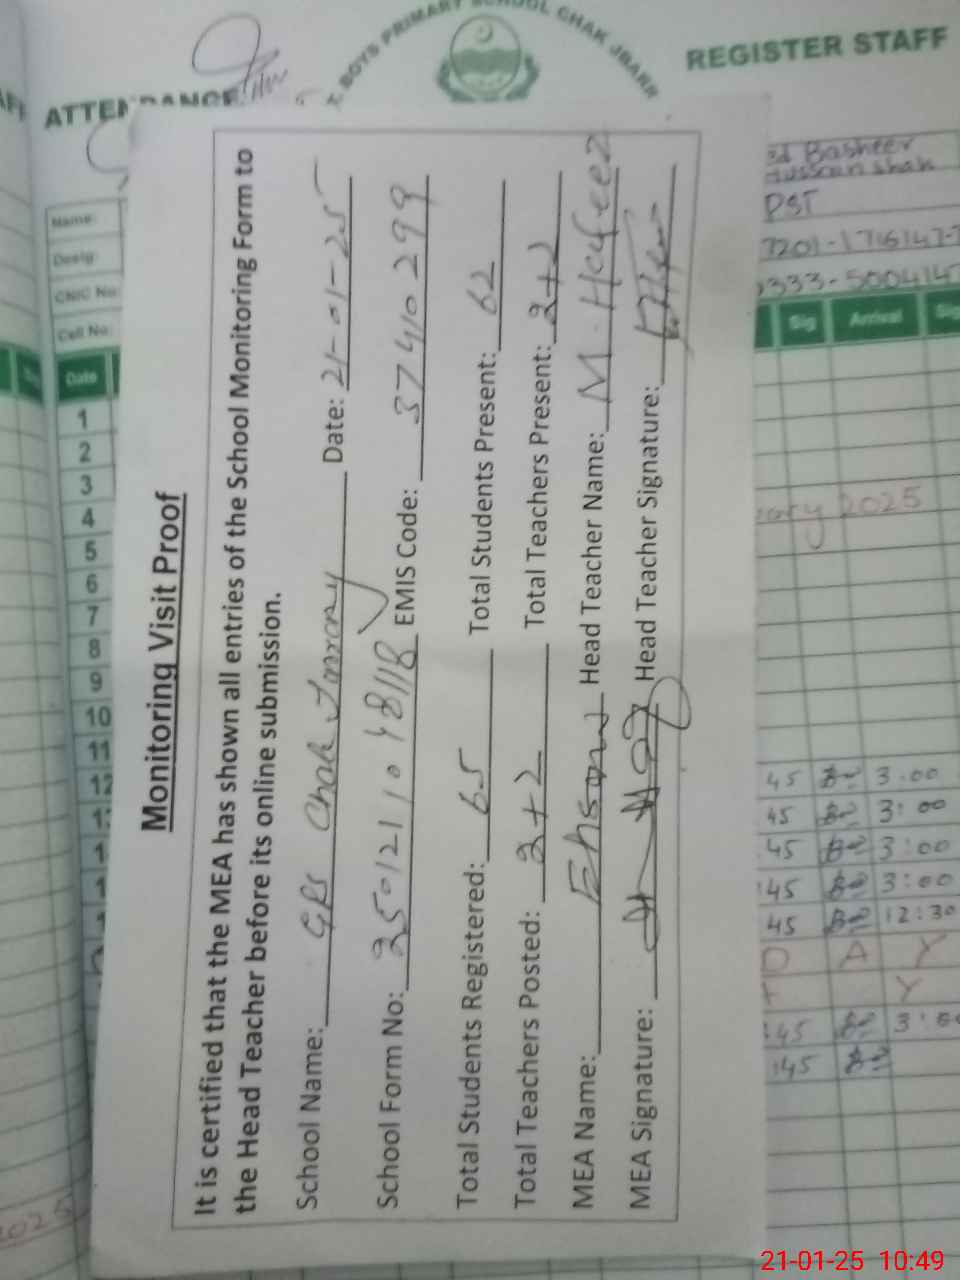 Monitoring Visit Proof
It is certified that the MEA has shown all entries of the School Monitoring Form to
the Head Teacher before its online submission.
School Name: GPS Chak Date: 21-01-25
School Form No: EMIS Code: 37410299
Total Students Registered: 65 Total Students Present: 62
Total Teachers Posted: 2+2 Total Teachers Present: 2+2
MEA Name: Ehsan Head Teacher Name: M. Hafeez
MEA Signature: Head Teacher Signature:
ATTENDANCE
BOYS PRIMARY SCHOOL CHAK JBARR
REGISTER STAFF
Name:
Desig:
CNIC No:
Cell No:
Basheer
Hussain shah
PST
7201-1716147-
333-5004147
Date Sig Arrival Sig
1
2
3
4
2025
5
6
7
8
9
10
11
12 45 3:00
45 3:00
45 3:00
45 3:00
45 12:30
D A Y
Y
45 3:
45
2025
21-01-25 10:49